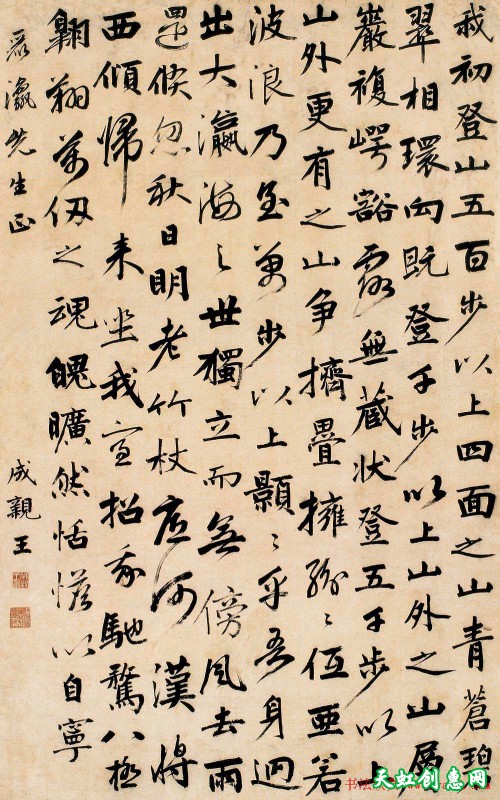 我初登山五百步以上四面之山青蒼碧
翠相環向既登千步以上山外之山屬
巖複崿豁露無藏狀登五千步以上
山外更有之山爭擠疊擁紛〻伍亞若
波浪乃至萬步以上顥〻乎吾身迥
出大瀛海之世獨立而無傍風去雨
還倏忽秋日明老竹杖底河漢將
西傾歸來坐我室招我馳騖八極
翱翔萬仞之魂魄曠然恬憺以自寧
先生正
成親王
天虹创惠网